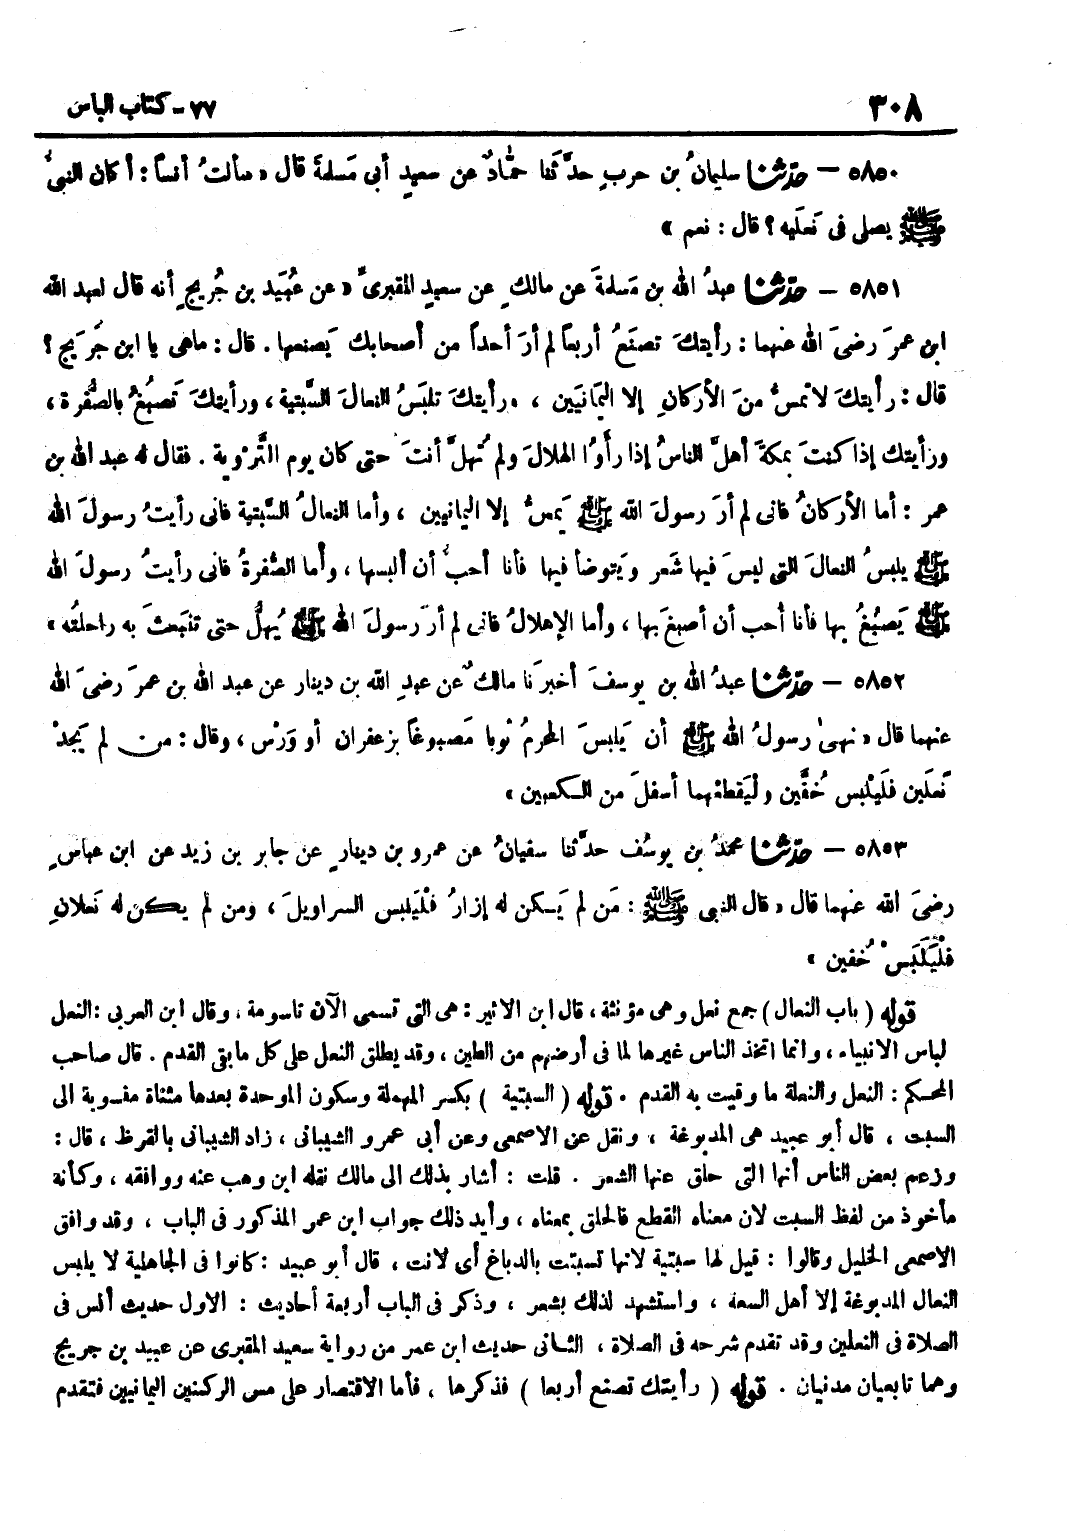 ٣٠٨ ٧٧ - كتاب الباس
٥٨٥٠ - حدثنا سليمانُ بن حربٍ حدَّثنا حمَّادٌ عن سعيدٍ أبى مَسلمةَ قال « سألتُ أنساً : أكان النبىُّ
ﷺ يصلى فى نَعلَيه ؟ قال : نعم »
٥٨٥١ - حدثنا عبدُ الله بن مَسلمةَ عن مالكٍ عن سعيدٍ المقبرىِّ « عن عُبَيد بن جُريجٍ أنه قال لعبد الله
ابن عمرَ رضىَ الله عنهما : رأيتكَ تصنَعُ أربعاً لم أرَ أحداً من أصحابك يَصنعها . قال : ماهى يا ابن جُرَيج ؟
قال : رأيتكَ لا تمسُّ منَ الأركانِ إلا اليَمانِيَين ، ورأيتكَ تلبَسُ النعالَ السَّبتية ، ورأيتكَ تَصبُغُ بالصُّفرة ،
ورأيتك إذا كنتَ بمكةَ أهلَّ الناسُ إذا رأَوُا الهلالَ ولم تُهلَّ أنتَ حتى كان يوم التَّرْوية . فقال له عبد الله بن
عمر : أما الأركانُ فانى لم أرَ رسولَ الله ﷺ يَمسُّ إلا اليمانيين ، وأما النعالُ السَّبتية فانى رأيتُ رسولَ الله
ﷺ يلبسُ النعالَ التى ليسَ فيها شعَر ويَتوضأ فيها فأنا أحبُّ أن ألبسها ، وأما الصُّفرةُ فانى رأيتُ رسولَ الله
ﷺ يَصبُغُ بها فأنا أحب أن أصبغَ بها ، وأما الإهلالُ فانى لم أرَ رسولَ الله ﷺ يُهلُّ حتى تنبَعثَ به راحلتُه »
٥٨٥٢ - حدثنا عبدُ الله بن يوسفَ أخبرَنا مالكٌ عن عبدِ الله بن دينار عن عبد الله بن عمرَ رضىَ الله
عنهما قال « نهىٰ رسولُ الله ﷺ أن يَلبسَ المحرمُ ثوبا مَصبوغاً بزعفران أو وَرْس ، وقال : من لم يَجدْ
نَعلَين فلَيلْبس خُفَّين ولْيَقطعْهما أسفلَ من الكعبين »
٥٨٥٣ - حدثنا محمدُ بن يوسُف حدَّثنا سفيانُ عن عمرو بن دينارٍ عن جابر بن زيد عن ابن عباسٍ
رضىَ الله عنهما قال « قال النبى ﷺ : مَن لم يَكن له إزارُ فلْيَلبس السراويلَ ، ومن لم يكن له نَعلانِ
فلْيَلبَسْ خُفين »
قوله ( باب النعال ) جمع نعل وهى مؤنثة ، قال ابن الاثير : هى التى تسمى الآن تاسومة ، وقال ابن العربى : النعل
لباس الانبياء ، وانما اتخذ الناس غيرها لما فى أرضهم من الطين ، وقد يطلق النعل على كل مايقى القدم . قال صاحب
المحكم : النعل والنعلة ما وقيت به القدم . قوله ( السبتية ) بكسر المهملة وسكون الموحدة بعدها مثناة منسوبة الى
السبت ، قال أبو عبيد هى المدبوغة ، ونقل عن الاصمعى وعن أبى عمرو الشيبانى ، زاد الشيبانى بالقرظ ، قال :
وزعم بعض الناس أنها التى حلق عنها الشعر . قلت : أشار بذلك الى مالك نقله ابن وهب عنه ووافقه ، وكأنه
مأخوذ من لفظ السبت لان معناه القطع فالحلق بمعناه ، وأيد ذلك جواب ابن عمر المذكور فى الباب ، وقد وافق
الاصمعى الخليل وقالوا : قيل لها سبتية لانها تسبتت بالدباغ أى لانت ، قال أبو عبيد : كانوا فى الجاهلية لا يلبس
النعال المدبوغة إلا أهل السعة ، واستشهد لذلك بشعر ، وذكر فى الباب أربعة أحاديث : الاول حديث أنس فى
الصلاة فى النعلين وقد تقدم شرحه فى الصلاة ، الثانى حديث ابن عمر من رواية سعيد المقبرى عن عبيد بن جريج
وهما تابعيان مدنيان . قوله ( رأيتك تصنع أربعا ) فذكرها ، فأما الاقتصار على مس الركنين اليمانيين فتقدم